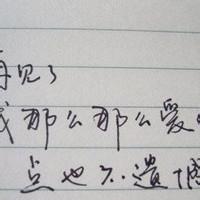 再见了
我那么那么爱
点也不遗憾